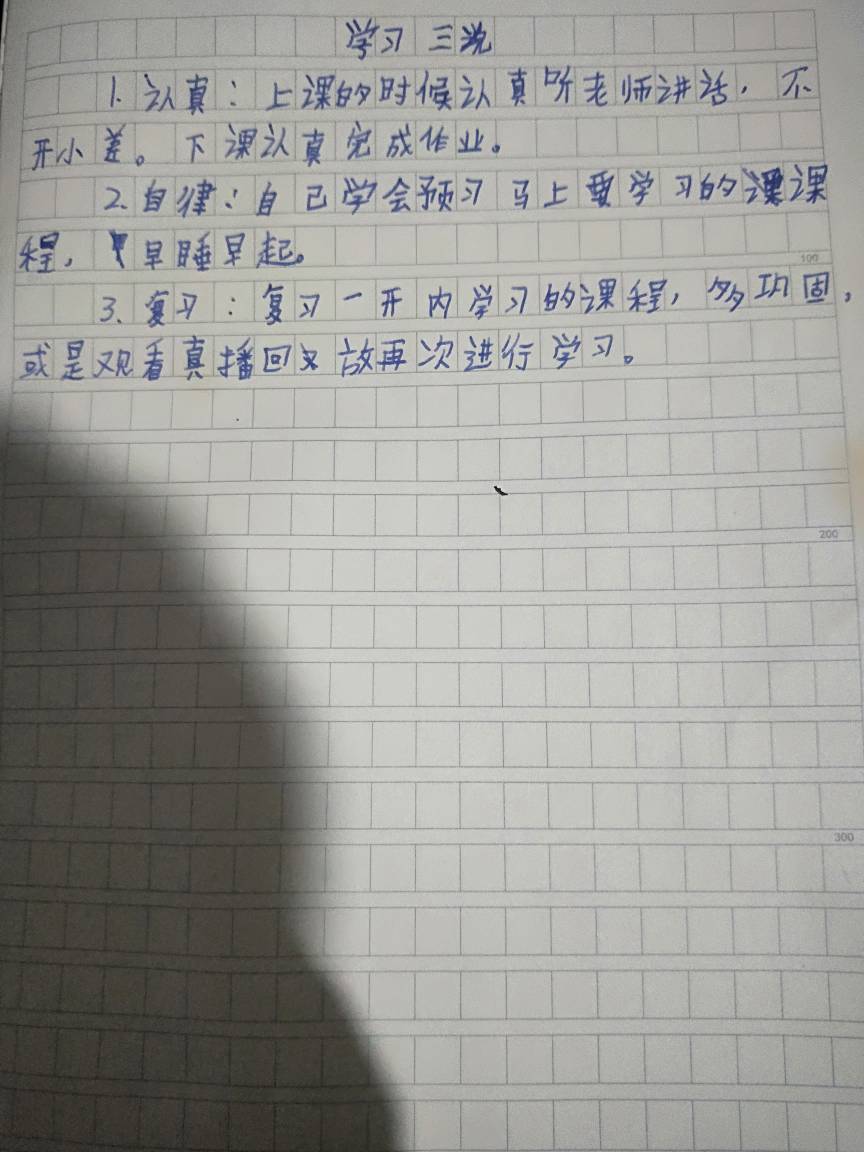 学习三说
1. 认真：上课的时候认真听老师讲话，不
开小差。下课认真完成作业。
2. 自律：自己学会预习马上要学习的课
程，早睡早起。
100
3. 复习：复习一开内学习的课程，多巩固，
或是观看真播回放再次进行学习。
200
300